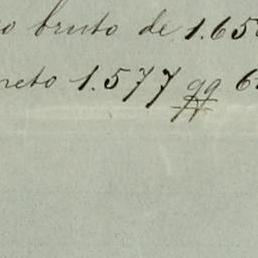 o bruto de 1.65
neto 1.577 qq 6